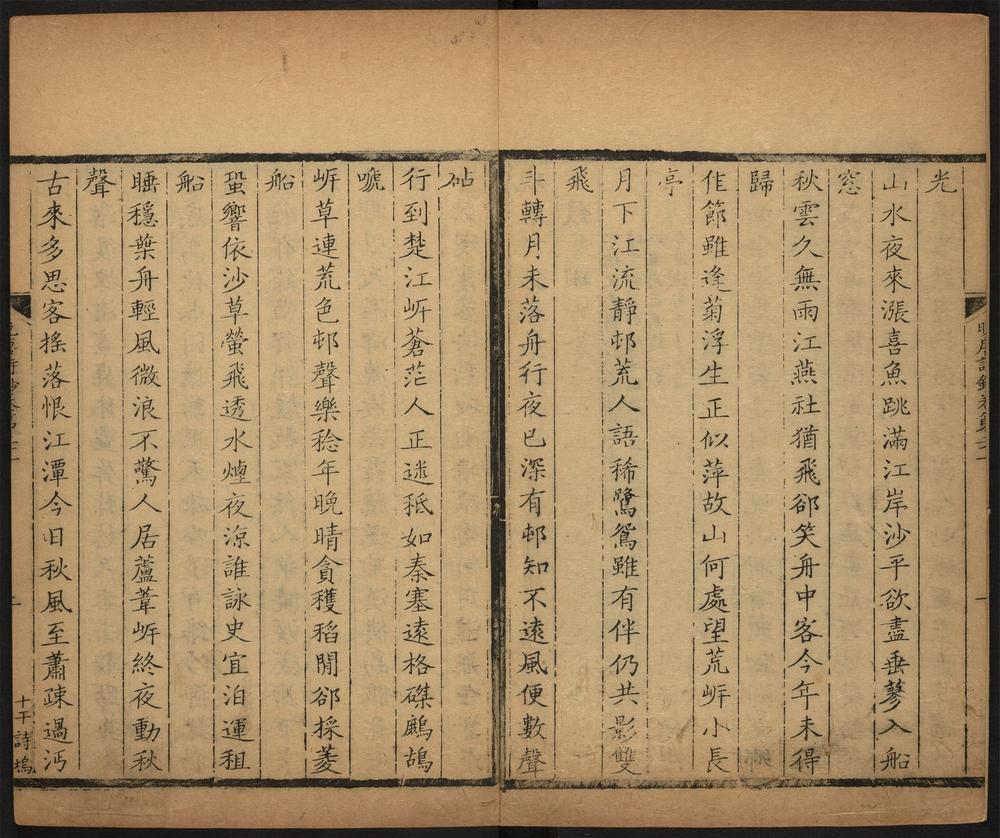 光
山水夜來漲喜魚跳滿江岸沙平欲盡垂蓼入船
窓
秋雲久無雨江燕社猶飛郤笑舟中客今年未得
歸
佳節雖逢菊浮生正似萍故山何處望荒岍小長
亭
月下江流靜邨荒人語稀鷺鴛雖有伴仍共影雙
飛
斗轉月未落舟行夜已深有邨知不遠風便數聲
砧
行到楚江岍蒼茫人正迷秪如秦塞遠格磔鷓鴣
嗁
岍草連荒色邨聲樂稔年晚晴貪穫稻閒郤採菱
船
蛩響依沙草螢飛透水煙夜涼誰詠史宜泊運租
船
睡穩葉舟輕風微浪不驚人居蘆葦岍終夜動秋
聲
古來多思客搖落恨江潭今日秋風至蕭疎過沔
十干詩塢